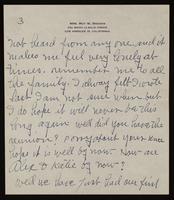 3
MRS. ROY W.
LOS ANGELES 31, CALIFORNIA
not heard from any one, and it
makes me feel very lonely at
times. remember me to all
the family. I alway felt I wrote
last I am not sure when but
I do hope it will never be this
long again well did you have the
reunion? poor fant your knee
hope it is well by now. How are
Alex & Katie by now?
Well we have just had our first